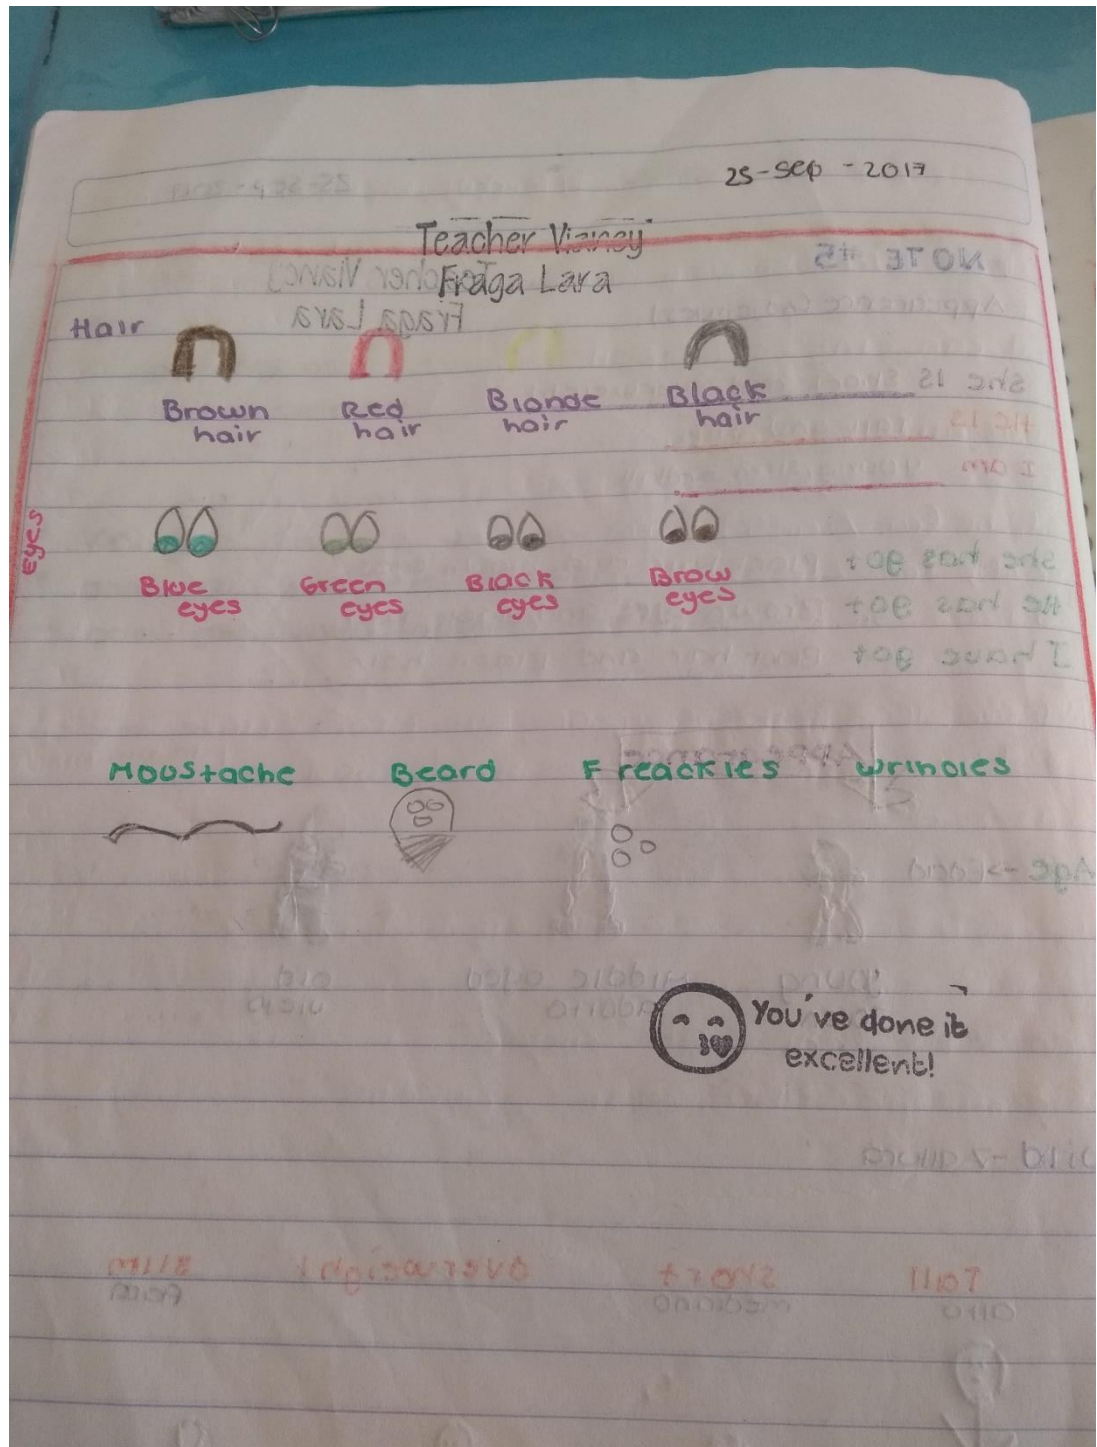 25-sep-2017
Teacher Vianey
Fraga Lara
Hair
Brown hair
Red hair
Blonde hair
Black hair
eyes
Blue eyes
Green eyes
Black eyes
Brow eyes
Moustache Beard Freackles wrincles
You've done it
excellent!